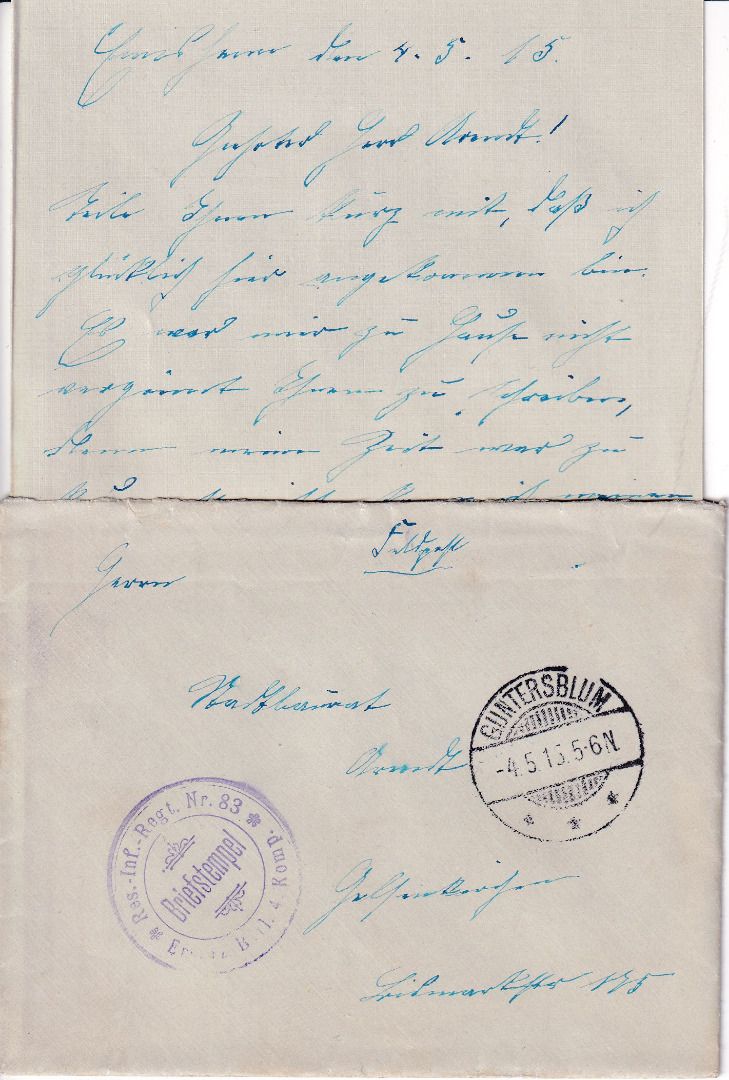 den 4. 5. 15.
Geehrter Herr Arendt!
Teile Ihnen kurz mit, daß ich
glücklich hier angekommen bin.
Es war mir zu Hause nicht
vergönnt Ihnen zu schreiben,
denn meine Zeit war zu
ich meinen
Feldpost
Herrn
Stadtbaurat
Arendt
Gelsenkirchen
Bismarckstr 175
GUNTERSBLUM
-4.5.15.5-6N.
Res.-Inf.-Regt. Nr. 83
Briefstempel
4. Komp.